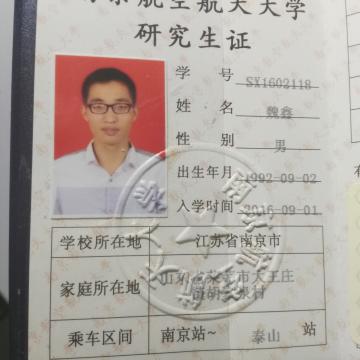 航空航天大学
研究生证
学 号 SX1602118
姓 名 魏鑫
性 别 男
出生年月 1992-09-02
入学时间 2016-09-01
学校所在地 江苏省南京市
家庭所在地 山东省莱芜市大王庄
乘车区间 南京站~ 泰山 站